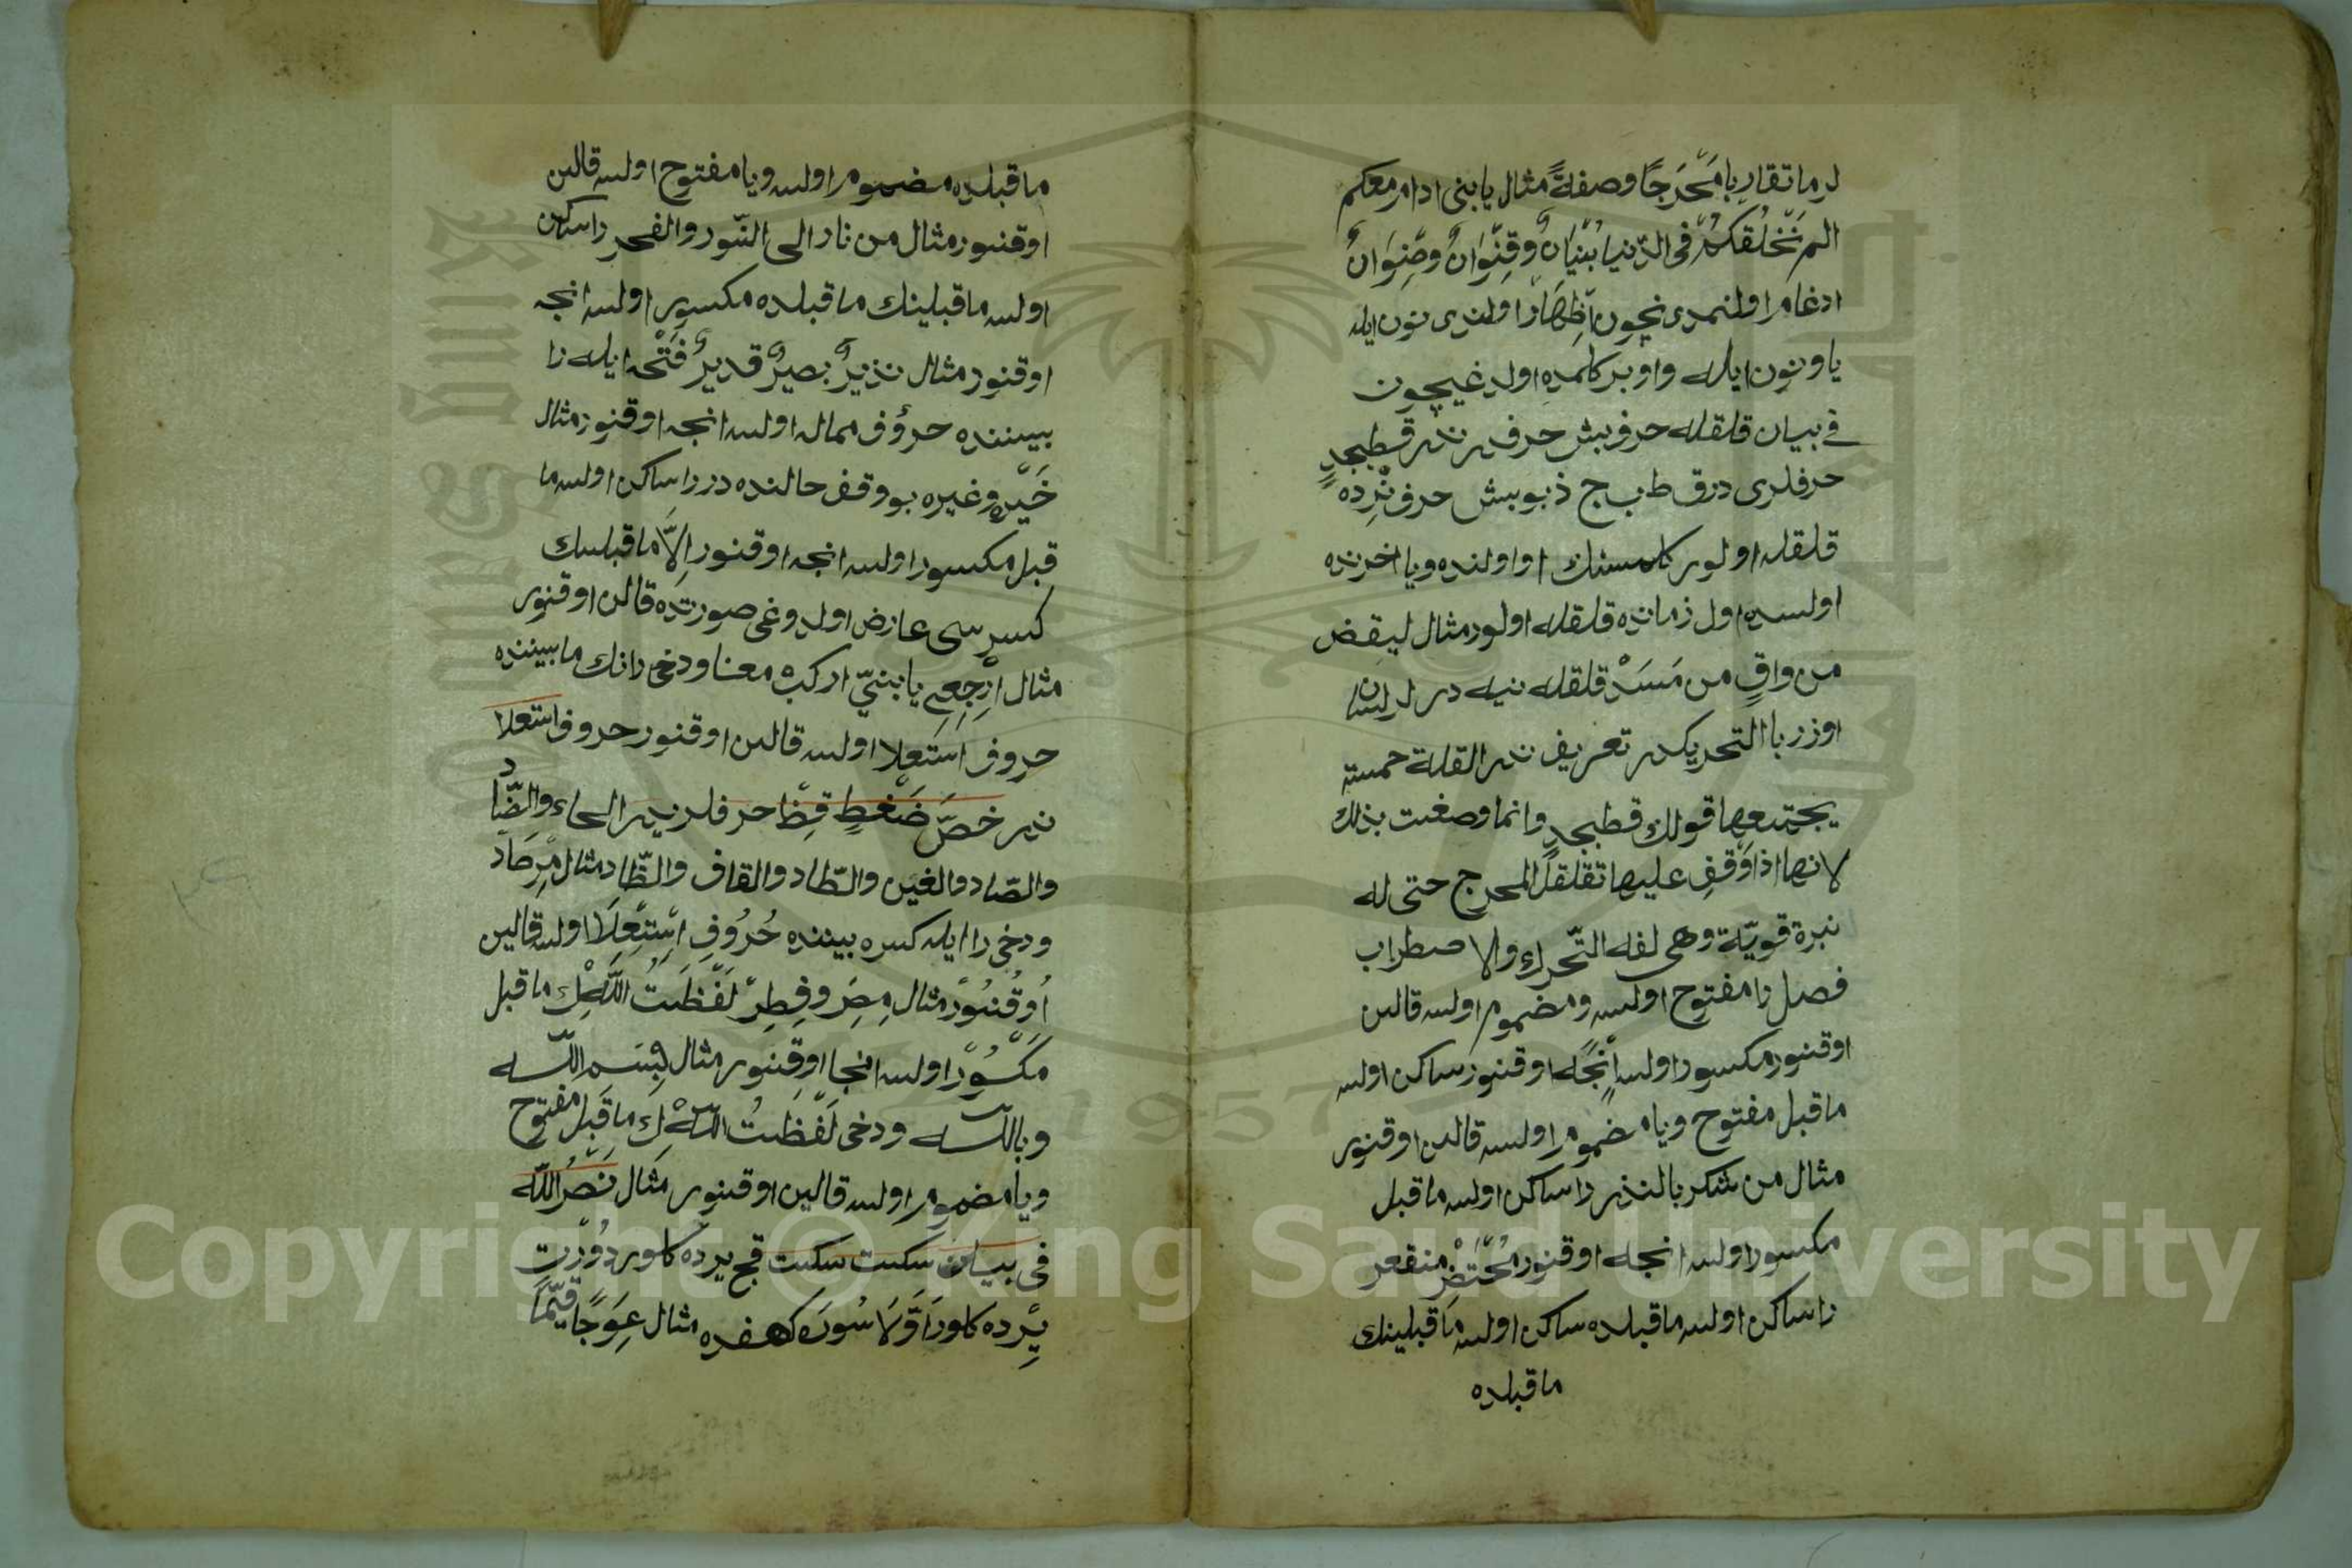 لر ماتقاربا مَخْرَجًا وصفةً مثال يا بنى ادام معكم
الم نَخْلُقكُمْ فى الدّنيا بُنْيَانٌ وقِنْوَانٌ وصِنْوَانٌ
ادغام اولنمدى نچون اِظِهَار اولندى نون ايله
يا و نون ايله واو بر كلمده اولدغيچون
فى بيان قلقله حرف بش حرفدر ندر قطبجدٍ
حرفلرى در ق ط ب ج ذ بو بش حرف نِرده
قلقله اولور كلمسنك اولنده ويا اخرنده
اولسه اول زمانده قلقله اولور مثال ليقض
من واقٍ من مَسَدْ قلقله نيه در لر لسان
اوزر با التحريكدر تعريف ندر القلة خمسة
يجتمعها قولك قطبجدٍ وانما وصغت بذلك
لانها اذا وَقف عليها تقلقل المخرج حتى له
نبرة قويّة وهى لفه التّحرك والاضطراب
فصل را مفتوح اولسه ومضموم اولسه قالين
اوقنور مكسور اولسه اِنجَه اوقنور ساكن اولسه
ماقبل مفتوح ويا مضموم اولسه قالين اوقنور
مثال من شكر بالنذر را ساكن اولسه ماقبل
مكسور اولسه انجه اوقنور مُحْتَضِرْ منقعر
را ساكن اولسه ماقبلده ساكن اولسه ماقبلينك
ماقبلده
ماقبلده مضموم اولسه ويا مفتوح اولسه قالين
اوقنور مثال من نار الى النّور والفجر را ساكن
اولسه ماقبلينك ماقبلده مكسور اولسه انجه
اوقنور مثال نذيرٌ بصيرٌ قديرٌ فَتْحه ايله را
بيننده حرُوف مماله اولسه انجه اوقنور مثال
خَيْره وغيره بو وقف حالنده در را ساكن اولسه ما
قبل مكسور اولسه انجه اوقنور اِلاَّ ماقبلينك
كسر سى عارض اولدوغى صورتده قالن اوقنور
مثال اِرْجِعِى يا بنيّ اركب معنا ودخى رانك مابيننده
حروف استعلا اولسه قالين اوقنور حروف استعلا
ندر خصَّ ضَغْطٍ قِظْ حرفلر ندر الخاء والضّاد
والصّاد والغين والطّاد والقاف والظّاد مثال مِرصَاد
ودخى را ايله كسره بيننده حُرُوفِ اِسْتِعِلَا اولسه قالين
اُوقُنُورْ مثال مِصَر وفِطِرْ لَفْظَتُ اَللّٰهْ لك ماقبل
مَكْسُورْ اولسه انجا اوقِنور مثال بِسَم اللّه
وباللّه ودخى لَفْظتُ اللّٰهْ ك ماقَبل مفتوح
ويا مضموم اولسه قالين اوقنور مثال نَصْرُ اللّٰه
فى بيان سكت سكت قچ يرده كلور دُوْرْت
يِرْده كلور اَوَّلَا سُورَه كهفده مثال عِوَجًا قيّمًا